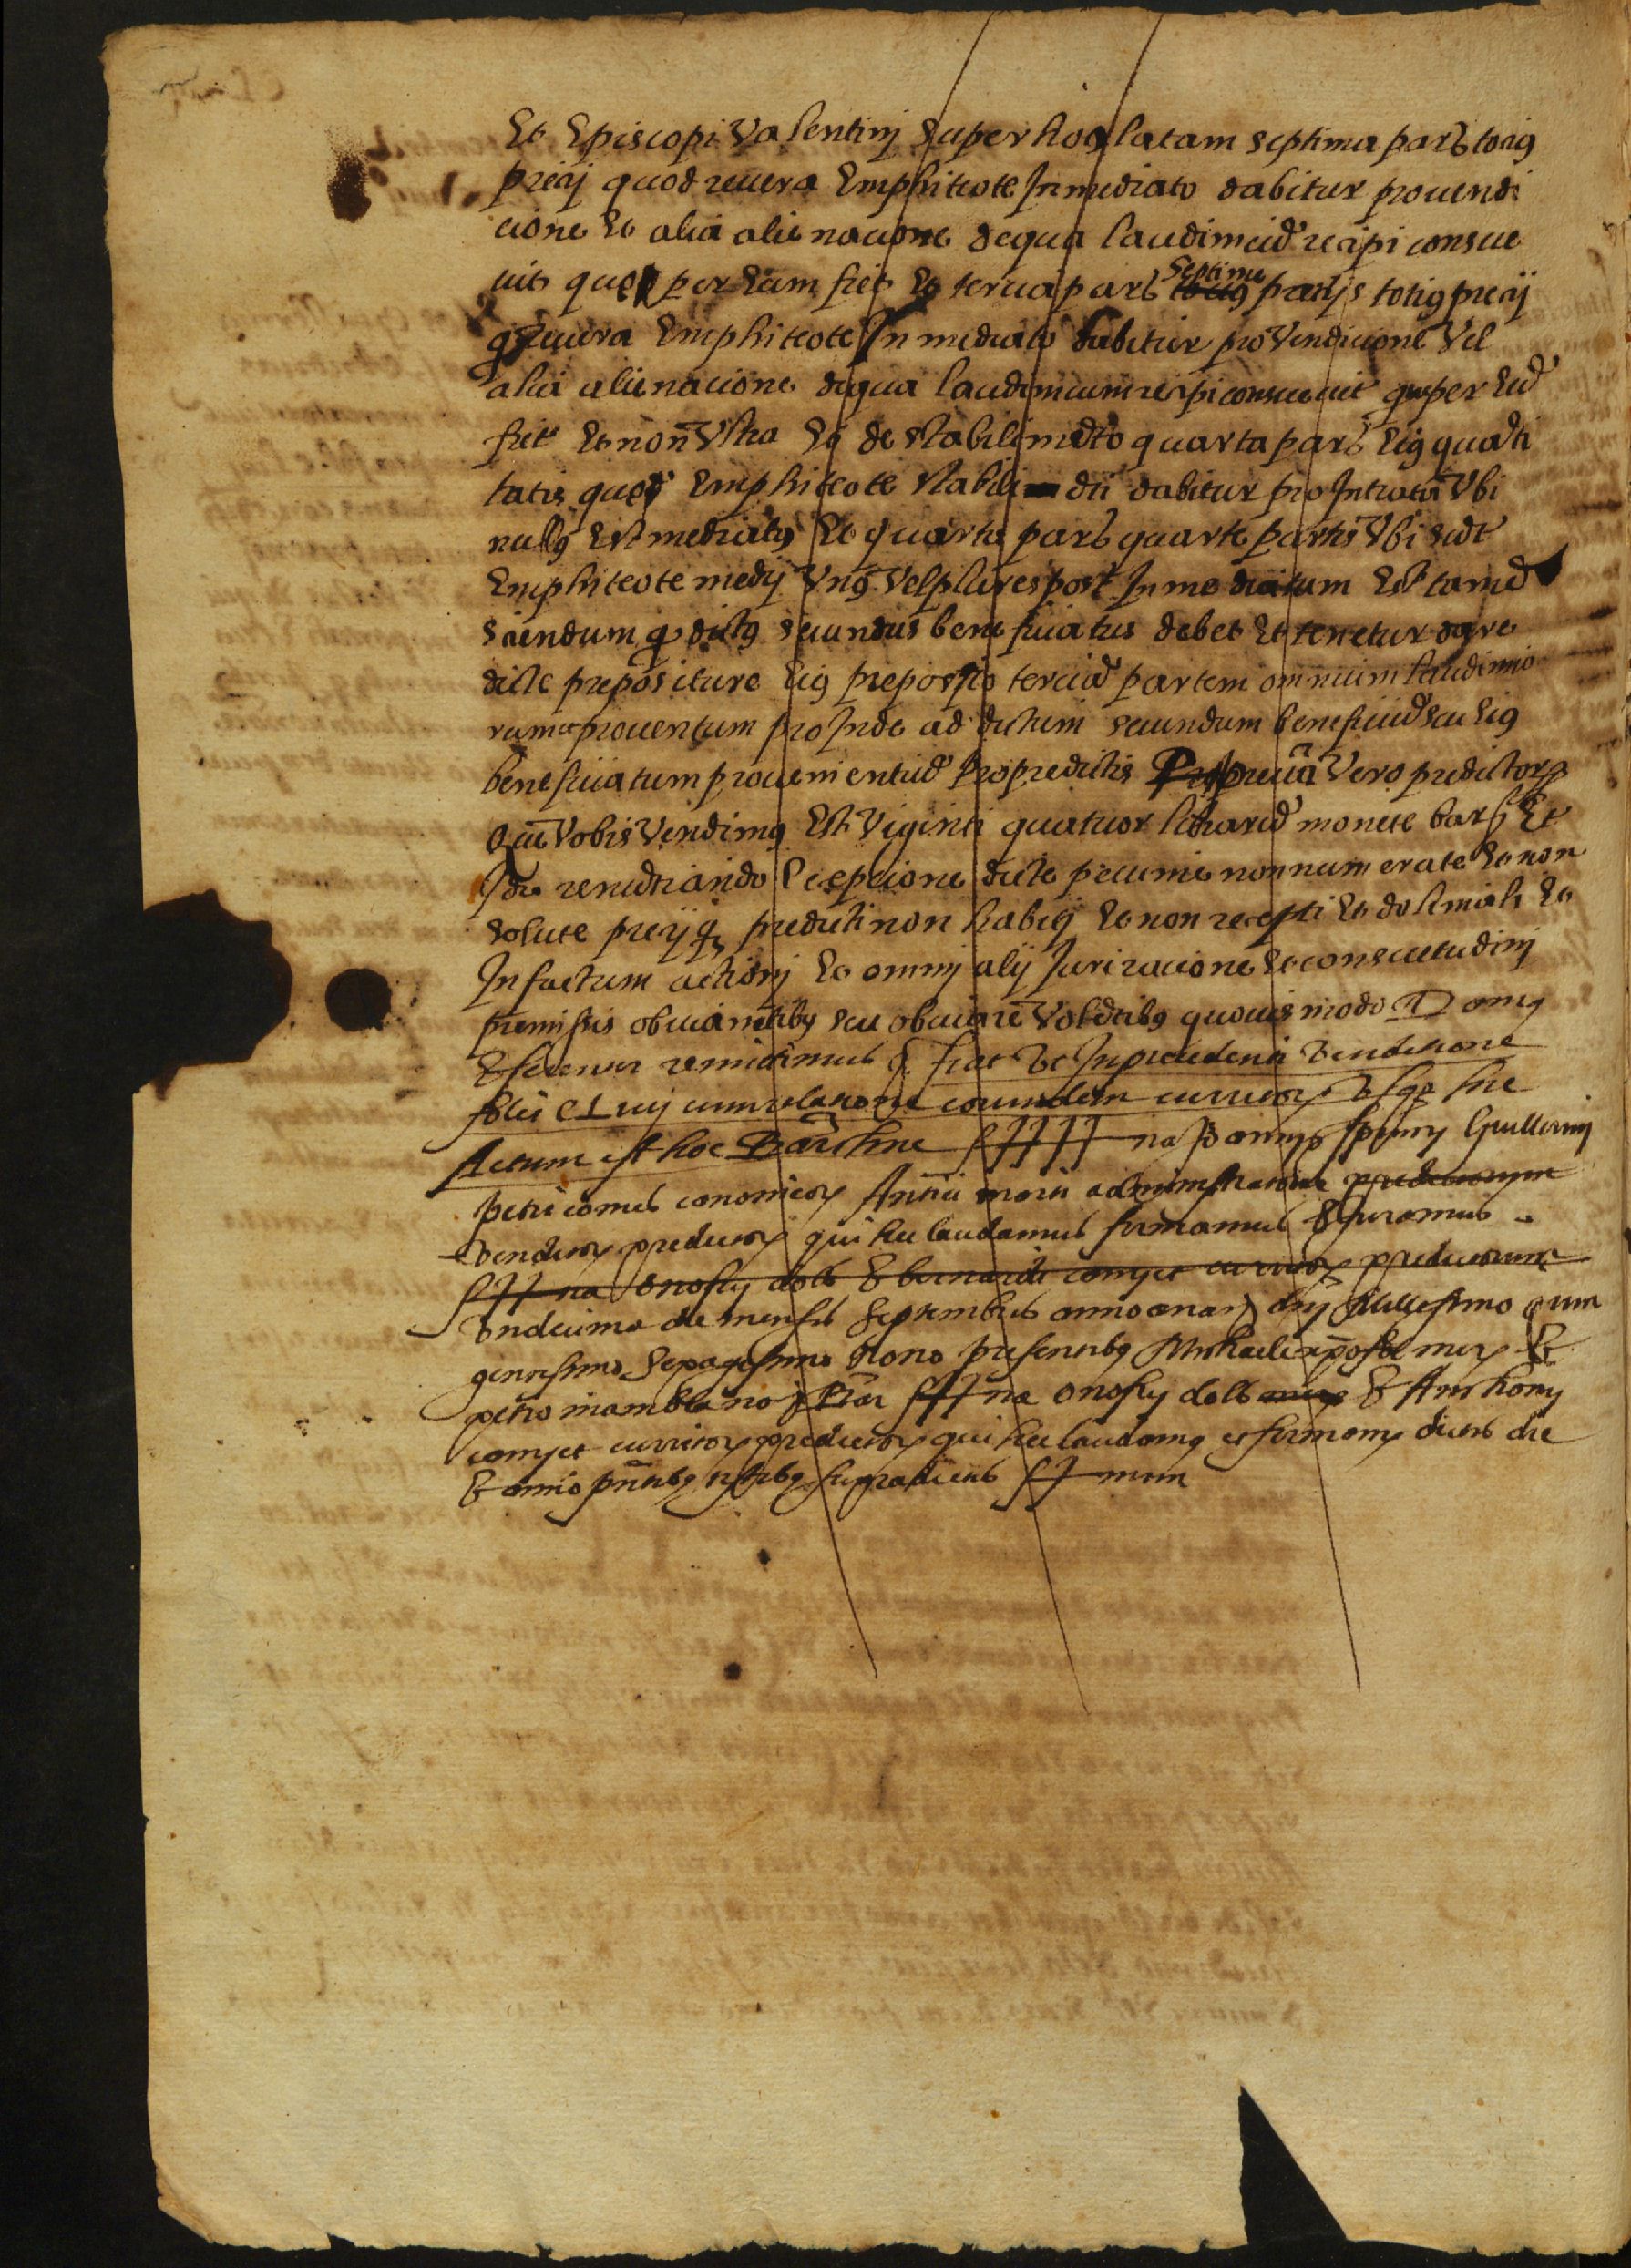 Et Episcopi Valentinj super hoc latam septima pars tocius
precij quod revera Emphiteote Inmediato dabitur pro vendi
cione Et alia alienacione de qua laudimiũ recipi consue
vit que per Eum fiet Et tercia pars septime partis totius precij
q̃ revera Emphiteote In mediato dabitur pro Vendicione Vel
alia alienacione de qua laudimium recipi consuevit que per Eũ
fiet Et non Vltra Et de stabilimẽto quarta pars Eius quãti
tatis que Emphiteote stabiliendi dabitur pro Intrata Vbi
nullus Est mediatus Et quarta pars quarte partis Vbi sũt
Emphiteote medij Vnus Vel plures post Inmediatum Est tamẽ
sciendum q̃ dictus secundus beneficiatus debet Et tenetur dare
dicte prepositure Eius preposito terciã partem omnium laudimio
rum provenientum pro Inde ad dictum secundum beneficiũ seu Eius
beneficiatum provenientiũ pro predictis Precium Vero predictorum
que Vobis Vendimus Est Viginti quatuor librarũ monete bar Et
Ideo renũciando Excepcione dicte pecunie non numerate Et non
solute precijq̃ predicti non habiti Et non recepti Et doli mali Et
In factum actionj Et omnj alij Juri racione Et consuetudinj
premissis obviantibus seu obviare Volẽtibus quovis modo Donamus
Et scienter remittimus fiat Vt In precedenti Vendicione
folio CLvij cum relatione eorumdem curritorum Vsque hic
Actum est hoc Barchine na petri Guillermi
petri comes canonicorum Antici administratorum predictorum
Venditorum predictorum qui hec laudamus firmamus & juramus
na Onofrij dols & bernardi comjet curritorum predictorum
Vndecima die mensis Septembris anno a natᵉ dnj Millesimo quin
gentesimo Sexagesimo Nono presentibus Michaele &
petro mambla no Bar na Onofrij dols & Anthonij
comjet curritorum predictorum qui hec laudamus et firmamus dictis die
& anno pñtibus testibus supradictis